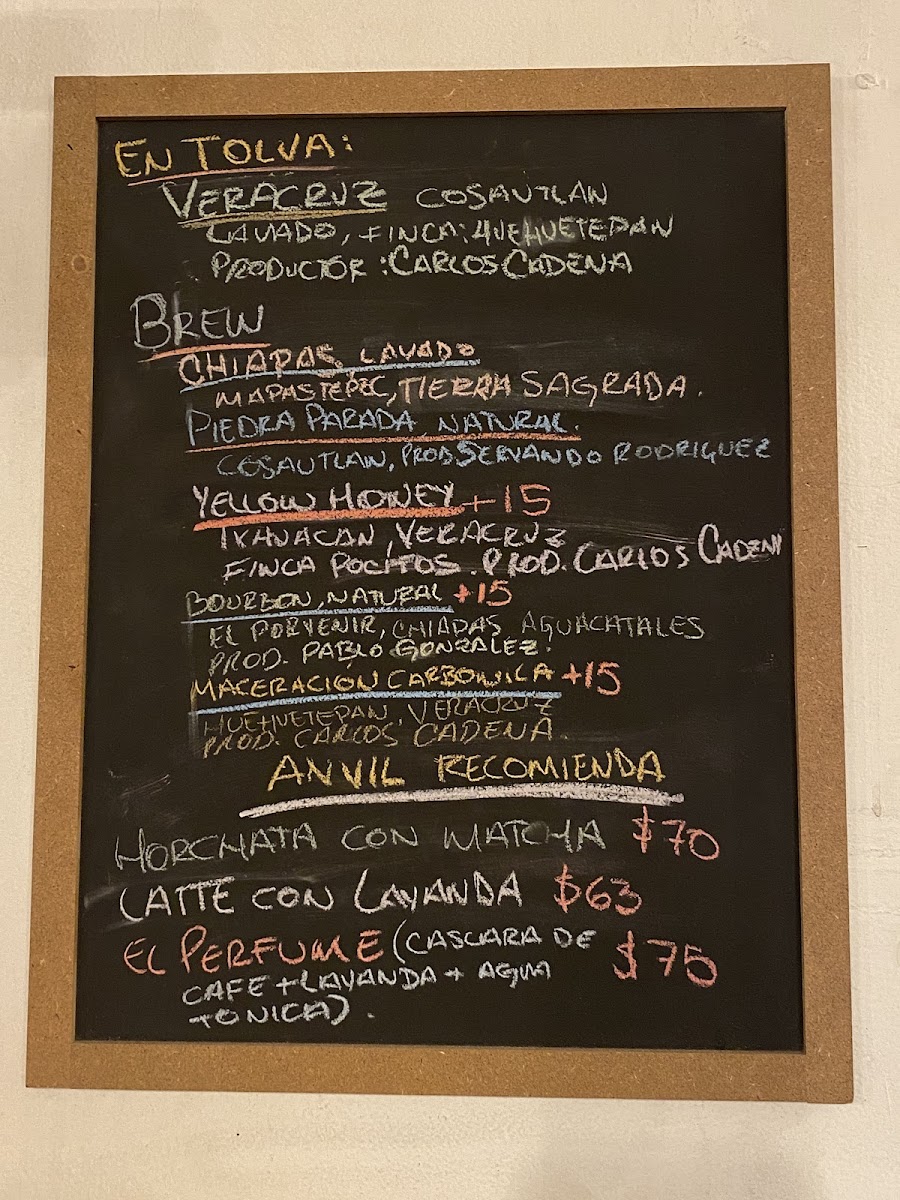 EN TOLVA:
VERACRUZ COSAUTLAN
LAVADO, FINCA: HUEHUETEPAN
PRODUCTOR: CARLOS CADENA
BREW
CHIAPAS, LAVADO
MAPASTEPEC, TIERRA SAGRADA.
PIEDRA PARADA NATURAL.
COSAUTLAN, PROD SERVANDO RODRIGUEZ
YELLOW HONEY +15
IXHUACAN, VERACRUZ
FINCA POCITOS. PROD. CARLOS CADENA
BOURBON, NATURAL +15
EL PORVENIR, CHIAPAS AGUACATALES
PROD. PABLO GONZALEZ.
MACERACION CARBONICA +15
HUEHUETEPAN, VERACRUZ
PROD. CARLOS CADENA.
ANVIL RECOMIENDA
HORCHATA CON MATCHA $70
LATTE CON LAVANDA $63
EL PERFUME (CASCARA DE $75
CAFE + LAVANDA + AGUA
TONICA).